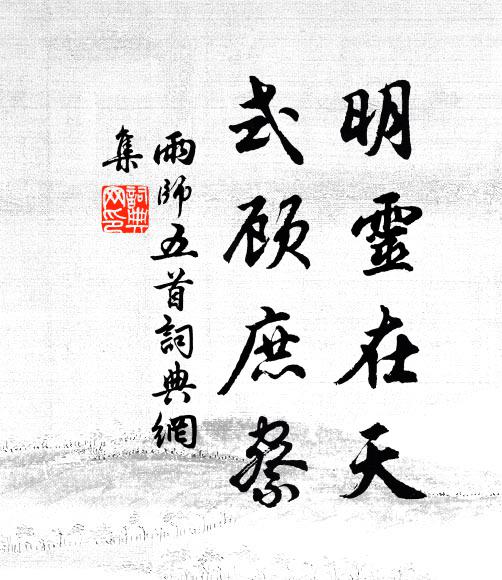 明靈在天
式顾庶察
雨师五首詞典網
集
詞典
网印